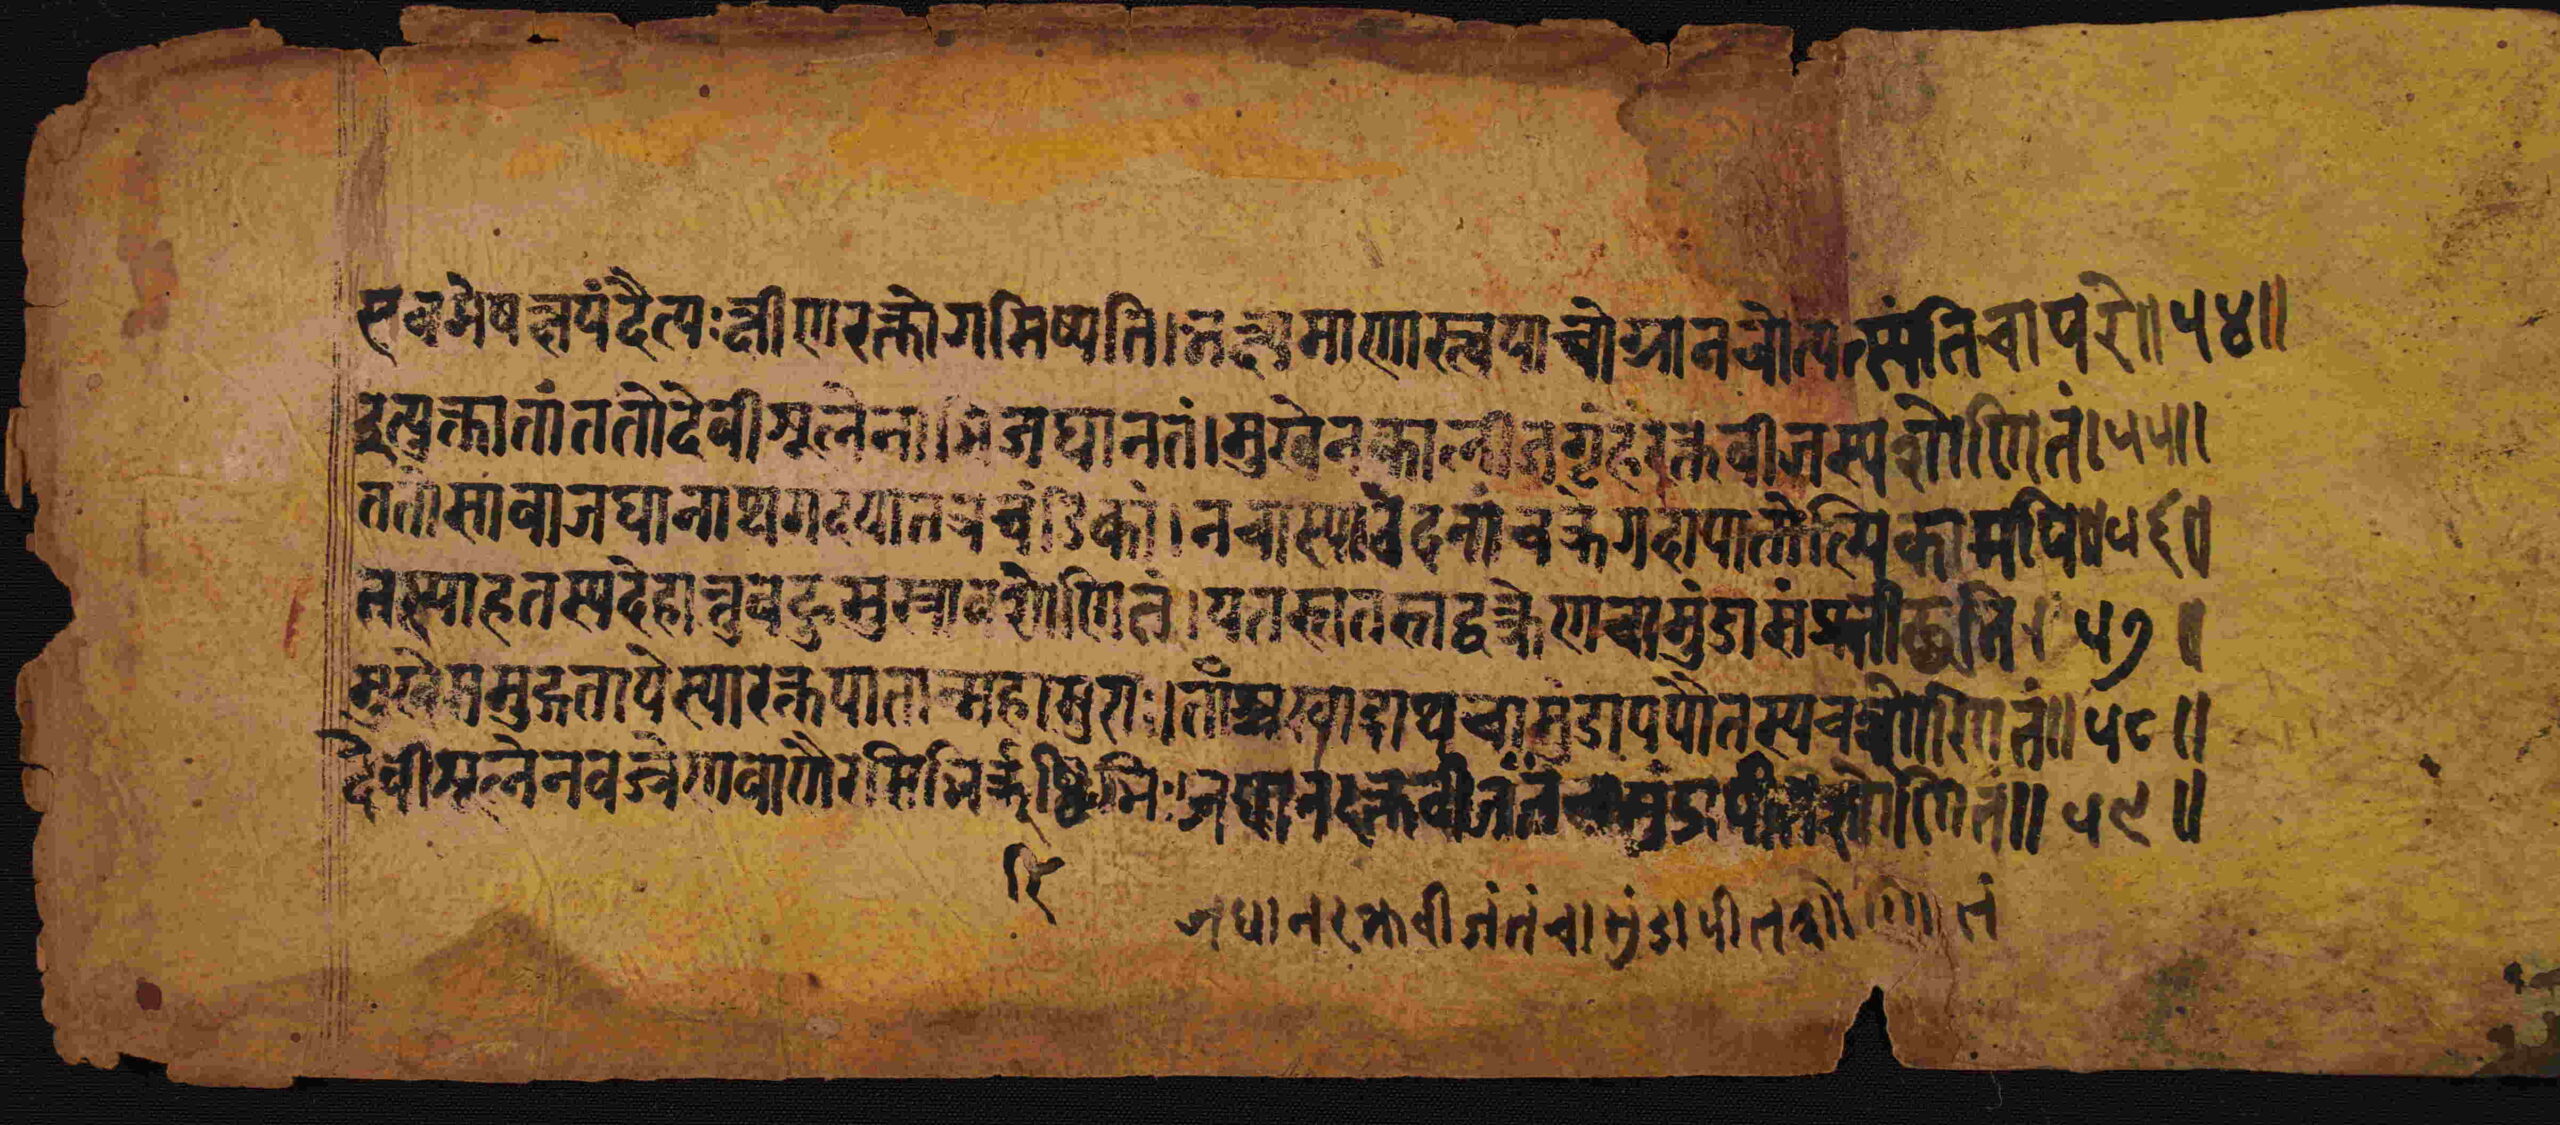 एवमेषक्षयंदैत्यःक्षीणरक्तोगमिष्यति।भक्ष्यमाणास्त्वयाचोग्रानचोत्पत्स्यंतिचापरे॥५४॥
इत्युक्त्वातांततोदेवीशूलेनाभिजघानतं।मुखेनकालीजगृहेरक्तवीजस्यशोणितं।५५॥
ततोसावाजघानाथगदयातत्रचंडिकां।नचास्यावेदनांचक्रेगदापातोल्पिकामपि॥५६॥
तस्याहतस्यदेहात्तुबहुसुस्रावशोणितं।यतस्ततस्तद्वक्त्रेणचामुंडासंप्रतीछति।५७॥
मुखेसमुद्गतायेस्यारक्तपातान्महासुराः।तांश्चखादाथचामुंडापपौतस्यचशोणितं॥५८॥
देवीशूलेनवज्रेणवाणैरसिभिर्ऋष्टिभिः।जघानरक्तवीजंतंचामुंडापीतशोणितं॥५९॥
जघानरक्तवीजंतंचामुंडापीतशोणितं